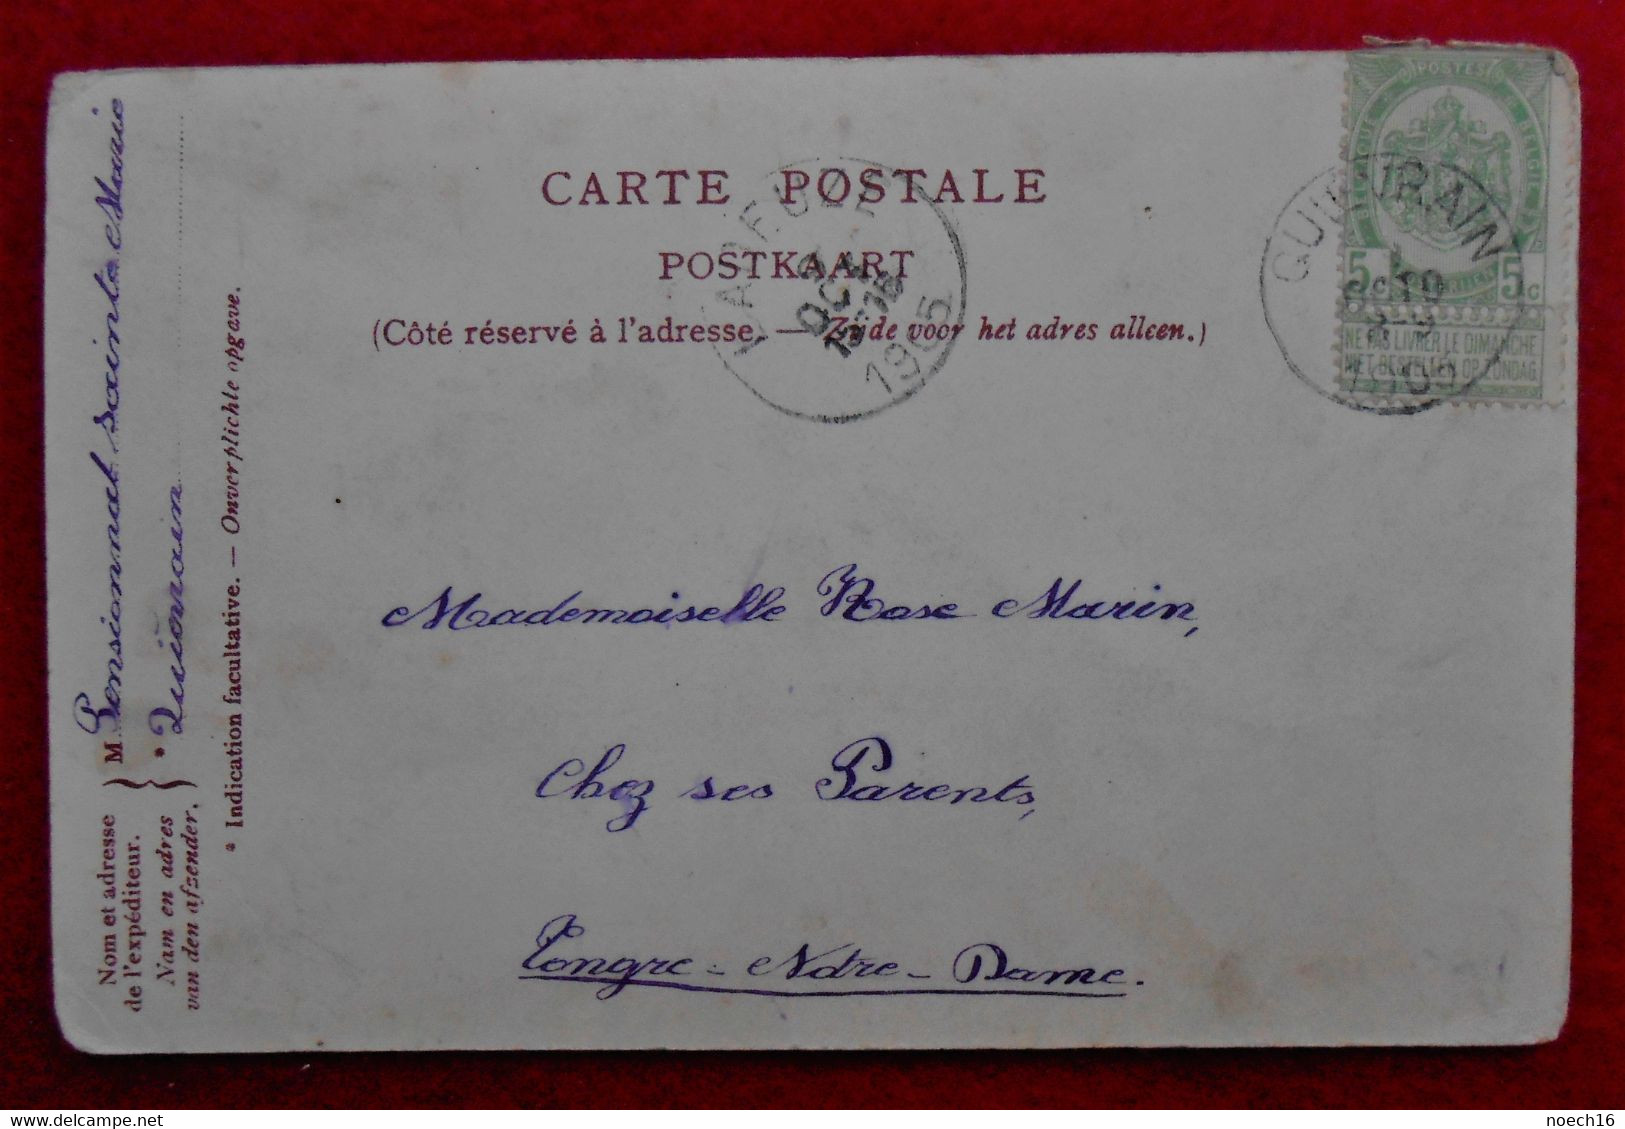 CARTE POSTALE
POSTKAART
(Côté réservé à l'adresse. — Zijde voor het adres alleen.)
POSTES
BELGIE
5 c 5 c
NE PAS LIVRER LE DIMANCHE
NIET BESTELLEN OP ZONDAG
OCT
1905
Mademoiselle Rose Marin,
Chez ses Parents,
Tongre-Notre-Dame.
Nom et adresse
de l'expéditeur.
Nam en adres
van den afzender.
M Pensionnat sainte Marie
* Quiévrain
* Indication facultative. — Onverplichte opgave.
noech16